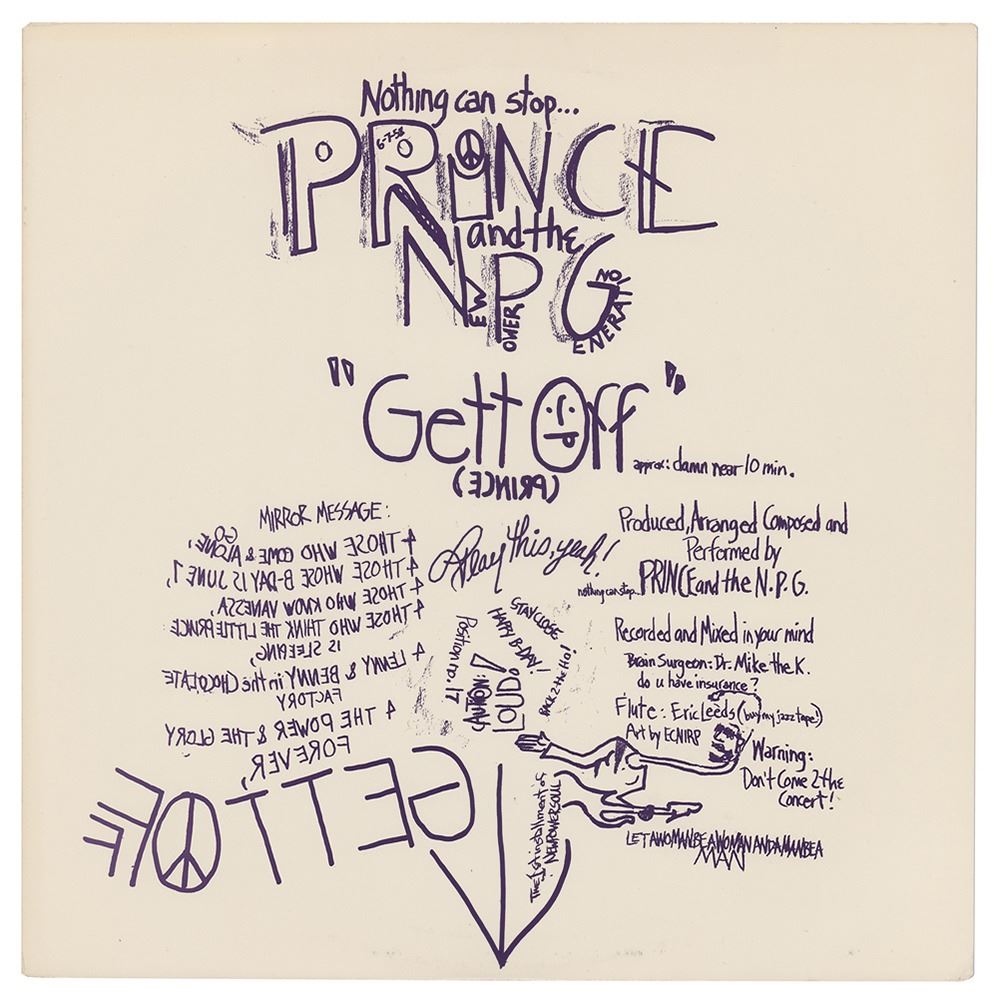 Nothing can stop...
6-7-58
PRINCE
and the
NPG
NEW POWER GENERATION
"Gett Off"
approx: damn near 10 min.
(PRINCE)
MIRROR MESSAGE:
4 THOSE WHO COME & GO ALONE,
4 THOSE WHOSE B-DAY IS JUNE 7,
4 THOSE WHO KNOW VANESSA,
4 THOSE WHO THINK THE LITTLE PRINCE
IS SLEEPING,
4 LENNY & BENNY in the CHOCOLATE
FACTORY
4 THE POWER & THE GLORY
FOREVER,
GETT OFF
Play this, yeah!
STAY CLOSE
HAPPY B-DAY!
Position no. 17
CAUTION:
LOUD!
BACK 2 the Ho!
Produced, Arranged Composed and
Performed by
nothing can stop... PRINCE and the N.P.G.
Recorded and Mixed in your mind
Brain Surgeon: Dr. Mike the K.
do u have insurance?
Flute: Eric Leeds (buy my jazz tape!)
Art by ECNIRP
Warning:
Don't Come 2 the
Concert!
The 1st installment of
NEW POWER SOUL
LET A WOMAN BE A WOMAN AND A MAN BE A
MAN